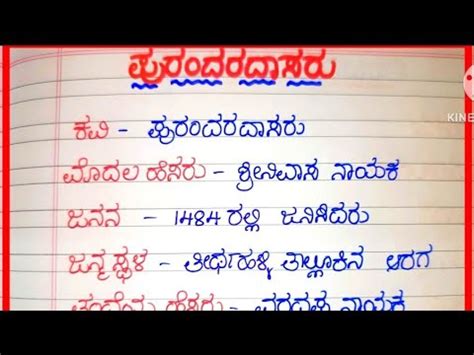 ಪುರಂದರದಾಸರು
KINE
ಕವಿ - ಪುರಂದರದಾಸರು
ಮೊದಲ ಹೆಸರು - ಶ್ರೀನಿವಾಸ ನಾಯಕ
ಜನನ - 1484 ರಲ್ಲಿ ಜನಿಸಿದರು
ಜನ್ಮ ಸ್ಥಳ - ತೀರ್ಥಹಳ್ಳಿ ತಾಲ್ಲೂಕಿನ ಆರಗ
ತಂದೆಯ ಹೆಸರು - ವರದಪ್ಪ ನಾಯಕ